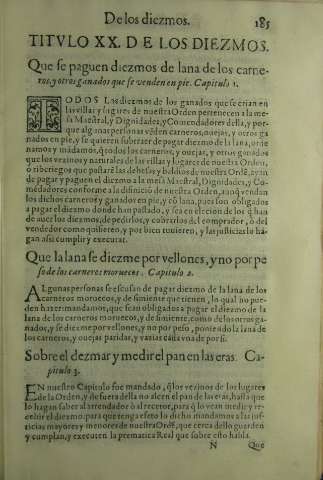 De los diezmos. 185
TITVLO XX. DE LOS DIEZMOS.
Que se paguen diezmos de lana de los carne-
ros, y otros ganados que se venden en pie. Capitulo 1.
TODOS Los diezmos de los ganados que se crian en
las villas y lugares de nuestra Orden pertenecen a la me-
sa Maestral, y Dignidades, y Comendadores della, y por-
que algunas personas vēden carneros, ouejas, y otros ga
nados en pie, y se quieren subtraer de pagar diezmo de la lana, orde
namos y mādamos, q̄ todos los carneros, y ouejas, y otros ganados
que los vezinos y naturales de las villas y lugares de nuestra Orden,
ò riberiegos que pastarē las debesas y beldios de nuestra Ordē, ayan
de pagar y paguen el diezmo a la mesa Maestral, Dignidades, y Co-
mēdadores conforme a la difinició de nuestra Orden, aunq̄ vendan
los dichos carneros y ganados en pie, y cō lana, pues son obligados
a pagar el diezmo donde han pastado, y sea en eleccion de los q̄ han
de auer los diezmos, de pedirlos, y cobrarlos del comprador, ò del
vendedor como quisieren, y por bien tuuieren, y las justicias lo ha-
gan assi cumplir y executar.
Que la lana se diezme por vellones, y no por pe
so de los carneros moruecos. Capitulo 2.
ALgunas personas se escusan de pagar diezmo de la lana de los
carneros moruecos, y de simiente que tienen, lo qual no pue-
den hazer mandamos, que sean obligados a pagar el diezmo de la
lana de los carneros moruecos, y de simiente, como de los otros ga-
nados, y se diezme por vellones, y no por peso, poniendo la lana de
los carneros, y ouejas paridas, y vazias cada vna de por si.
Sobre el dezmar y medir el pan en las eras. Ca-
pitulo 3.
EN nuestro Capitulo fue mandado, q̄ los vezinos de los lugares
de la Orden, y de fuera della no alcen el pan de las eras, hasta que
lo hagan saber al arrendador ò al recetor, para q̄ lo vean medir y re-
cebir el diezmo, para que tenga efeto lo dicho mandamos a las jus-
ticias mayores y menores de nuestra Ordē, que cerca dello guarden
y cumplan, y executen la prematica Real que sobre esto habla.
N Que